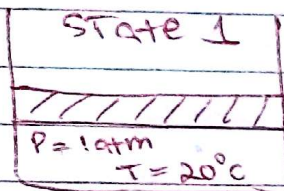 State 1
P = 1 atm
T = 20°C